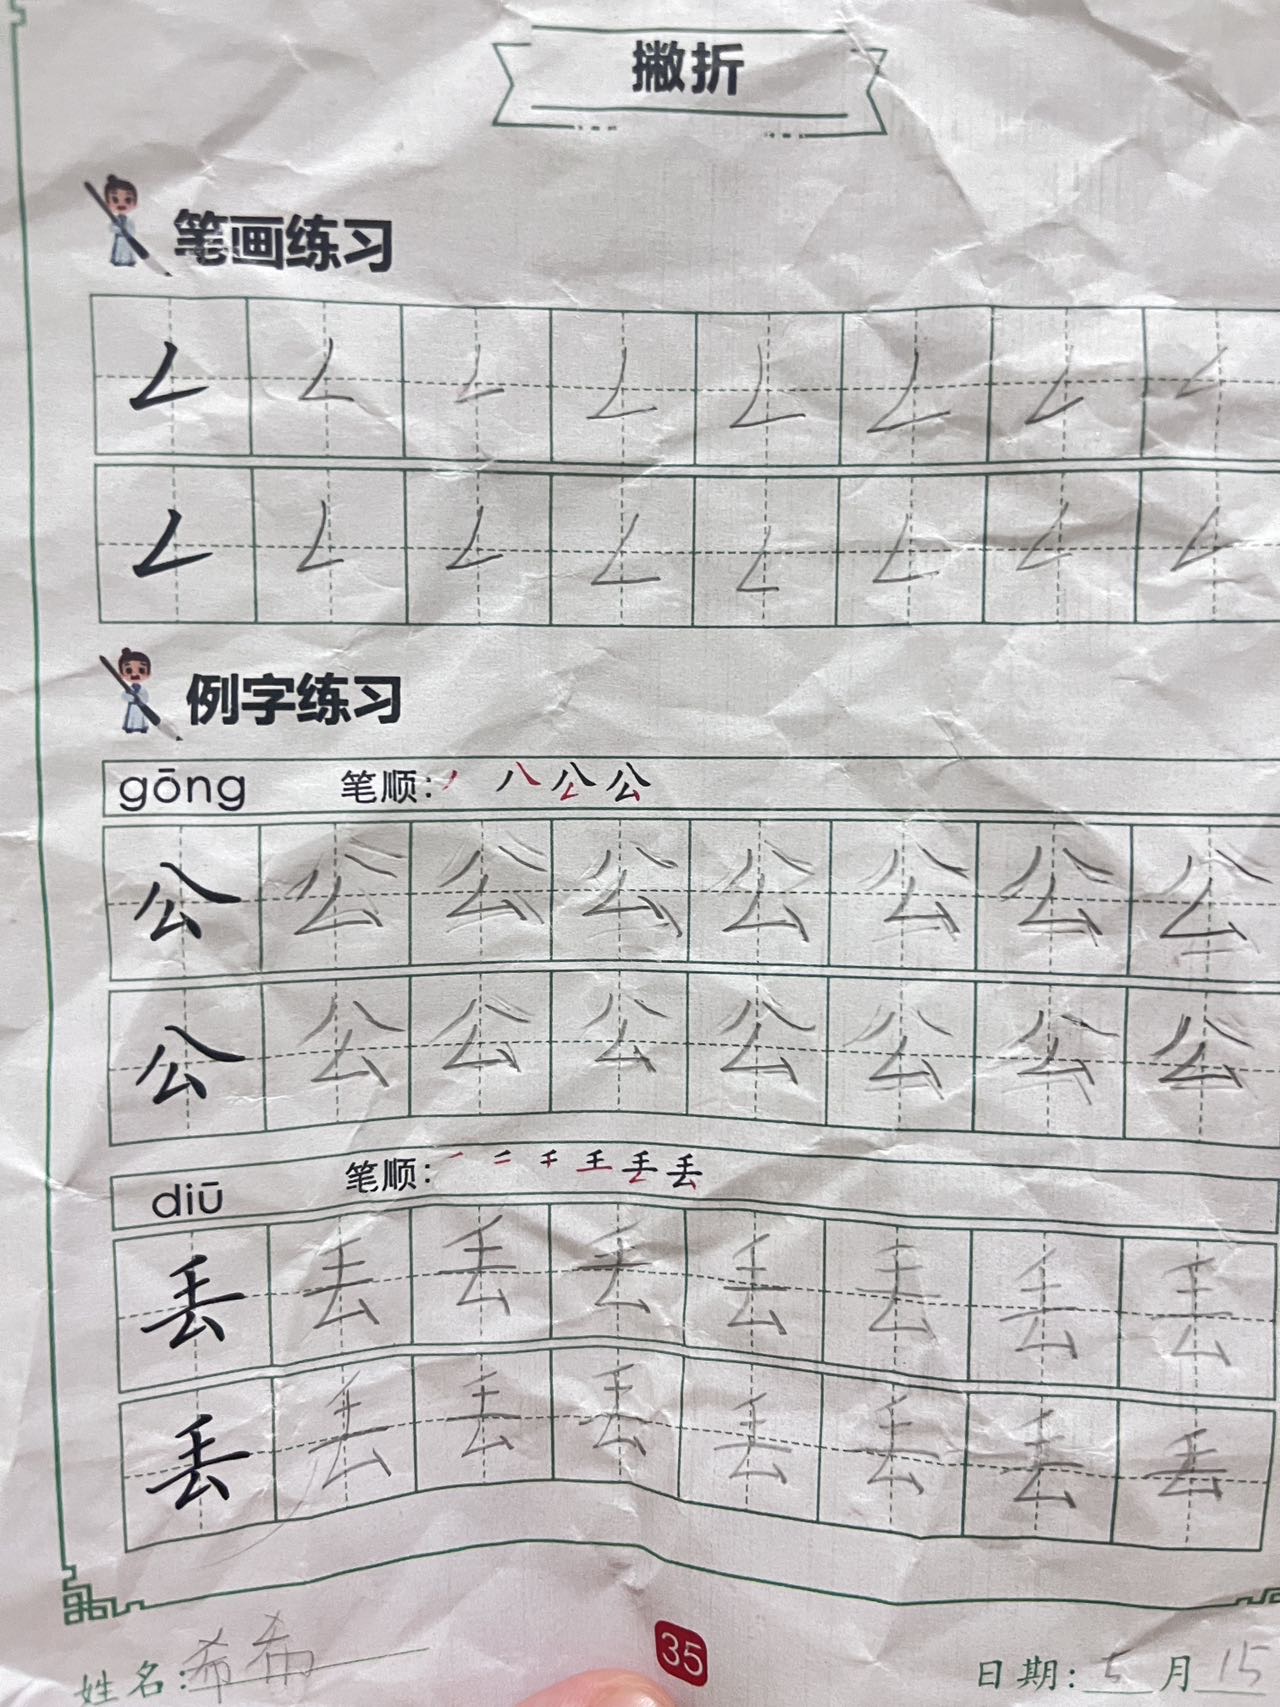 撇折
笔画练习
𠃋 𠃋 𠃋 𠃋 𠃋 𠃋 𠃋 𠃋
𠃋 𠃋 𠃋 𠃋 𠃋 𠃋 𠃋 𠃋
例字练习
gōng 笔顺: 丿 八 公 公
公 公 公 公 公 公 公 公
公 公 公 公 公 公 公 公
diū 笔顺: 丢
丢 丢 丢 丢 丢 丢 丢 丢
丢 丢 丢 丢 丢 丢 丢 丢
姓名: 希希 35 日期: 5 月 15